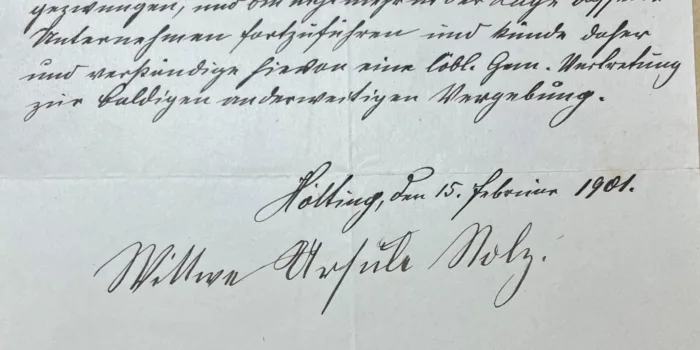 gezwungen, und bin nicht mehr in der Lage dieses
Unternehmen fortzuführen und künde daher
und verständige hievon eine löbl. Gem. Vertretung
zur baldigen anderweitigen Vergebung.
Hötting, den 15. Februar 1901.
Wittwe Ursula Stolz.